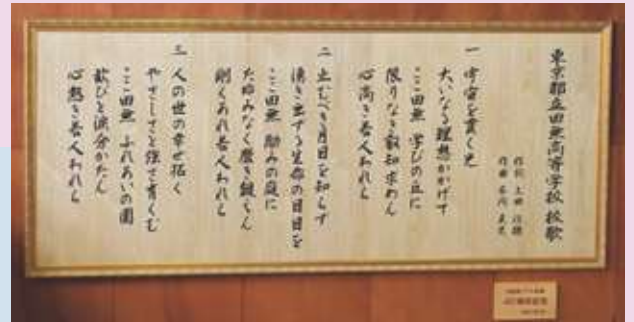 東京都立田無高等学校 校歌
作詞
作曲
一 宇宙を貫く光
大いなる理想かかげて
ここ田無 学びの丘に
限りなき叡知求めん
心高き若人われら
二 止むべき月日を知らず
湧き出ずる生命の日日を
ここ田無 励みの庭に
たゆみなく磨き鍛えん
剛くあれ若人われら
三 人の世の幸せ拓く
やさしさと強さ育くむ
ここ田無 ふれあいの園
歓びと涙分かたん
心熱き若人われら